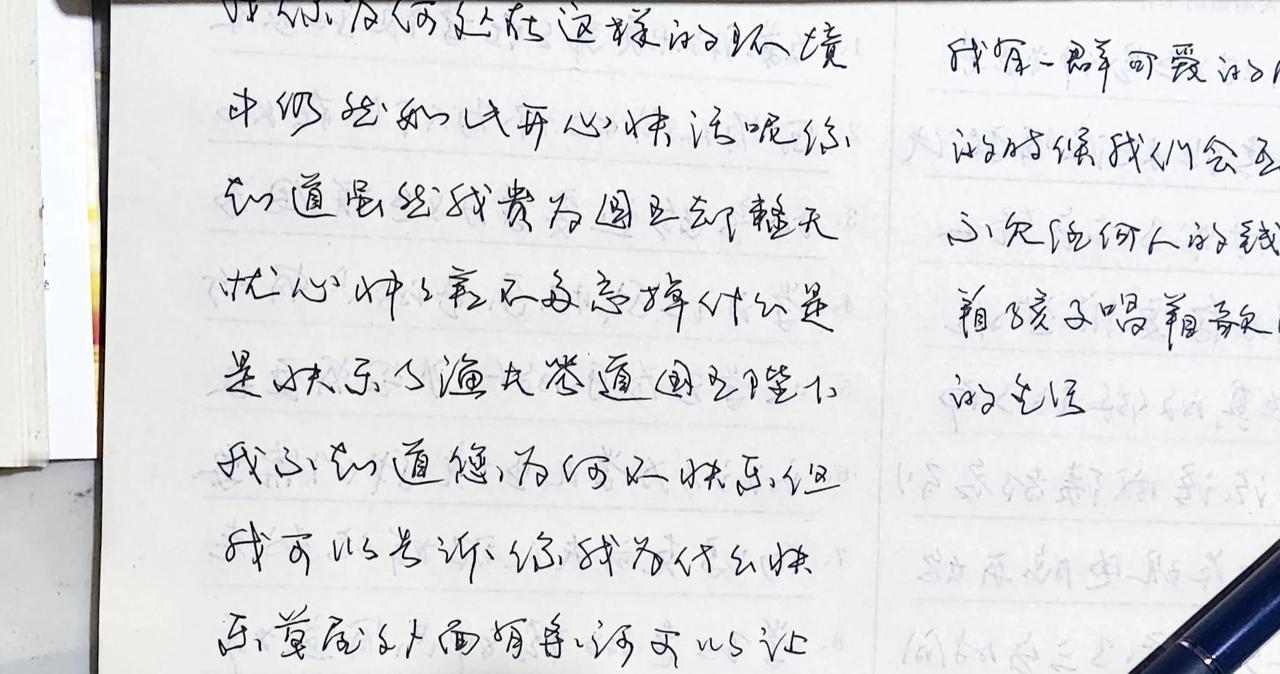 你为何处在这样的环境
中仍然如此开心快活呢你
知道虽然我贵为国王却整天
忧心忡忡差不多忘掉什么是
是快乐了渔夫答道国王陛下
我不知道您为何不快乐但
我可以告诉你我为什么快
乐草屋外面有条河可以让
我有一群可爱的
的时候我们会
不欠任何人的钱
着孩子唱着歌
的生活